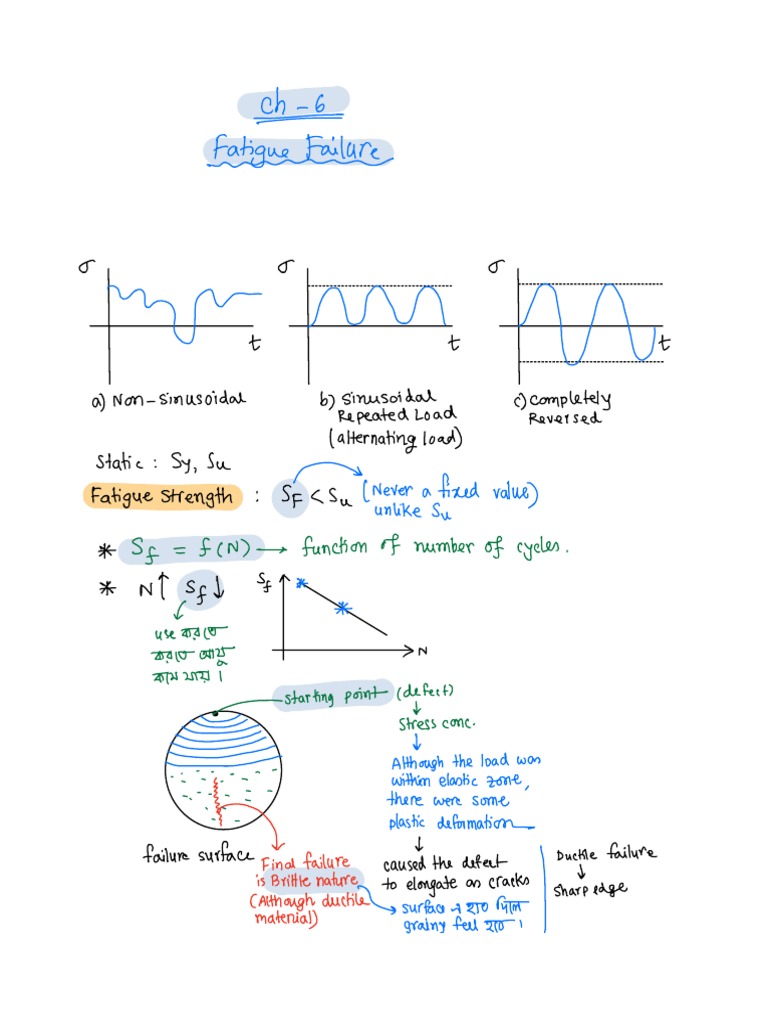 Ch – 6
Fatigue Failure
σ
t
a) Non-Sinusoidal
σ
t
b) Sinusoidal
Repeated Load
(alternating load)
σ
t
c) Completely
Reversed
Static : Sy, Su
Fatigue Strength : SF < Su (Never a fixed value)
unlike Su
* Sf = f(N) → function of number of cycles.
* N↑ Sf↓
use করতে
করতে আয়ু
কমে যায়।
Sf
N
starting point (defect)
↓
Stress conc.
↓
Although the load was
within elastic zone,
there were some
plastic deformation
↓
caused the defect
to elongate as cracks
surface এ হাত দিলে
grainy feel হবে।
failure surface
Final failure
is Brittle nature
(Although ductile
material)
Ductile failure
↓
Sharp edge